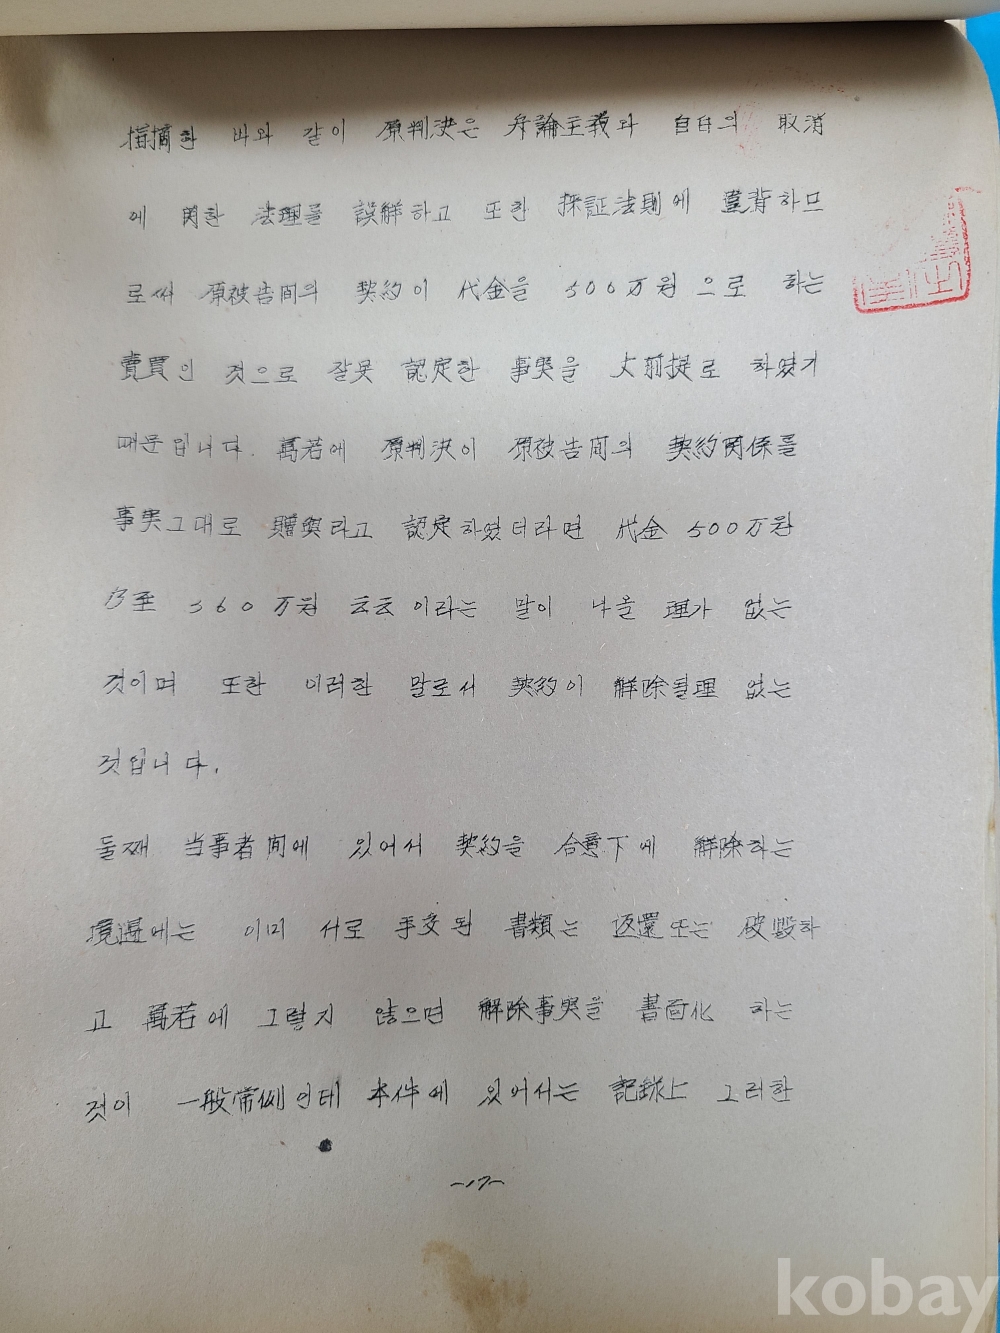 指摘한 바와 같이 原判決은 弁論主義와 自白의 取消
에 関한 法理를 誤解하고 또한 採証法則에 違背하므
로써 原被告間의 契約이 代金을 500万원 으로 하는
賣買인 것으로 잘못 認定한 事実을 大前提로 하였기
때문입니다. 萬若에 原判決이 原被告間의 契約関係를
事実그대로 贈與라고 認定하였더라면 代金 500万원
乃至 360万원 云云이라는 말이 나올 理가 없는
것이며 또한 이러한 말로서 契約이 解除될理 없는
것입니다.
둘째 当事者間에 있어서 契約을 合意下에 解除하는
境遇에는 이미 서로 手交된 書類는 返還또는 破毁하
고 萬若에 그렇지 않으면 解除事実을 書面化 하는
것이 一般常例인데 本件에 있어서는 記録上 그러한
-17-
kobay